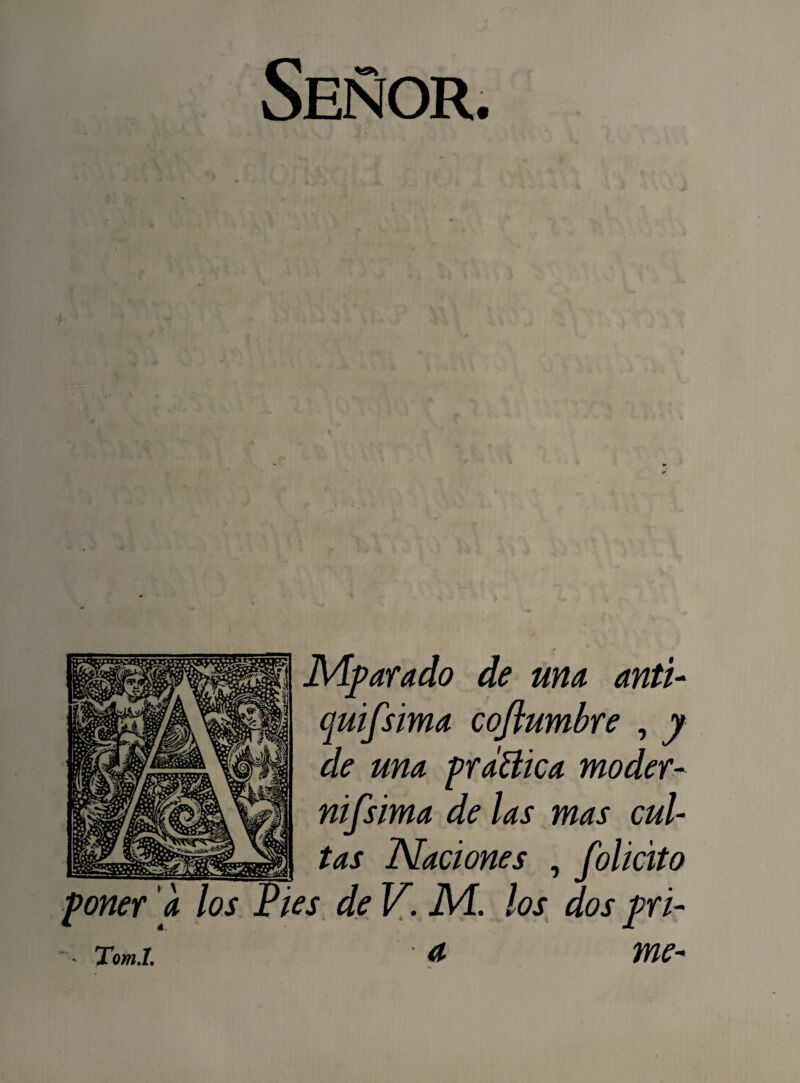 SEÑOR.
AMparado de una anti-
quiſsima coſtumbre , y
de una práctica moder-
niſsima de las mas cul-
tas Naciones , ſolicito
poner à los Pies de V. M. los dos pri-
Tom.I. a me-